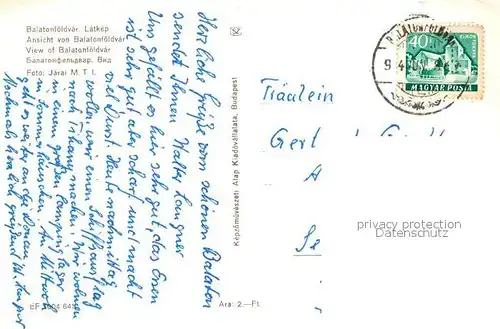 Balatonföldvár. Látkép
Ansicht von Balatonföldvár
View of Balatonföldvár
Балатонфельдвар. Вид
Foto: Járai M. T. I.
Herzliche Grüße vom schönen Balaton
sendet Ihnen Walter Langner
Uns gefällt es hier sehr gut, das Essen
ist sehr gut aber scharf und macht
viel Durst. Heute nachmittag
wollen wir einen Schiffsausflug
nach Tihany machen. Wir wohnen
in einem großen Campinglager
in Sommerhäuschen. Am Mittwoch
geht es weiter an die Donau
Nochmals herzlich grüßend
EF
Ára: 2.-Ft.
Képzőművészeti Alap Kiadóvállalata, Budapest
40
MAGYAR POSTA
Fräulein
Gert
A
Se
privacy protection
Datenschutz